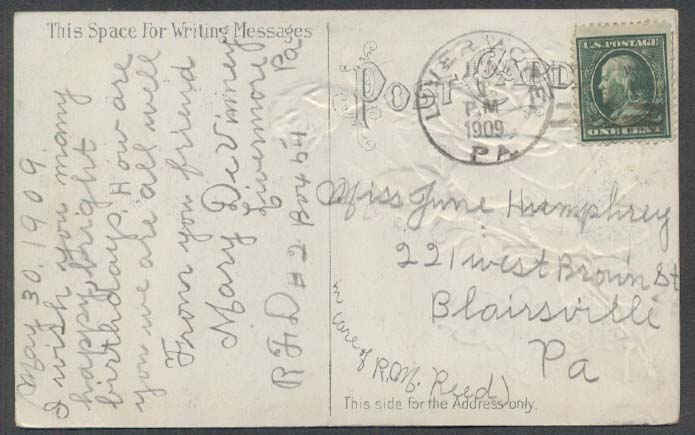 This Space For Writing Messages
May 30, 1909.
I wish you many
happy, bright
birthdays. How are
you we are all well
From you friend
Mary DeVinney
Livermore
Pa
RFD #2 Box 54
POST CARD
LIVERMORE
P.M.
1909
PA.
U.S. POSTAGE
ONE CENT
Miss June Humphrey
221 west Brown St
Blairsville
Pa
in care of
R.M. Reed)
This side for the Address only.